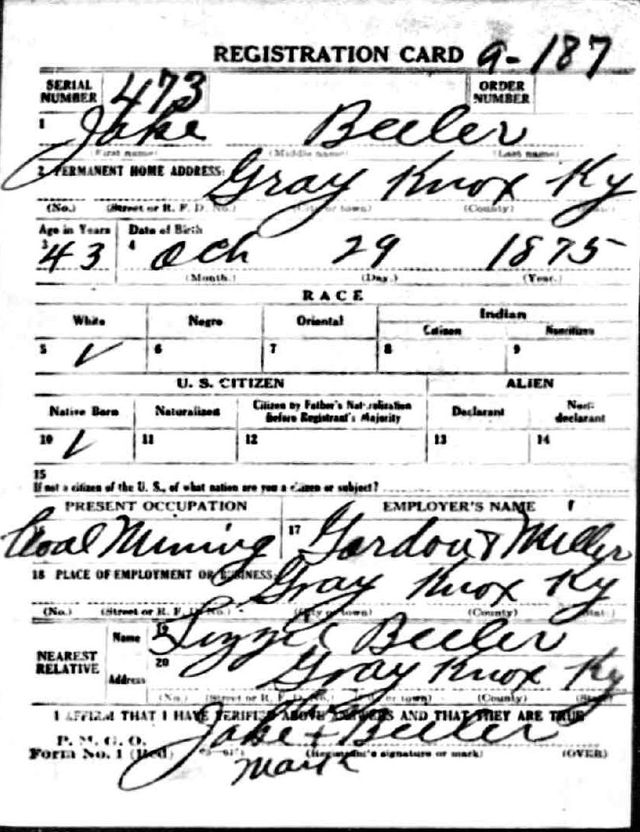 REGISTRATION CARD 9-187
SERIAL NUMBER 473 ORDER NUMBER
1 Jake Beeler
(First name) (Middle name) (Last name)
2 PERMANENT HOME ADDRESS: Gray Knox Ky
(No.) (Street or R. F. D. No.) (City or town) (County) (State)
Age in Years Date of Birth
3 43 4 Och 29 1875
(Month.) (Day.) (Year.)
RACE
White Negro Oriental Indian
Citizen Noncitizen
5 √ 6 7 8 9
U. S. CITIZEN ALIEN
Native Born Naturalized Citizen by Father's Naturalization Before Registrant's Majority Declarant Non-declarant
10 √ 11 12 13 14
15
If not a citizen of the U. S., of what nation are you a citizen or subject?
PRESENT OCCUPATION EMPLOYER'S NAME
Coal Mining 17 Gordon & Miller
18 PLACE OF EMPLOYMENT OR BUSINESS: Gray Knox Ky
(No.) (Street or R. F. D. No.) (City or town) (County) (State)
NEAREST RELATIVE Name 19 Lizzie Beeler
Address 20 Gray Knox Ky
(No.) (Street or R. F. D. No.) (City or town) (County) (State)
I AFFIRM THAT I HAVE VERIFIED ABOVE ANSWERS AND THAT THEY ARE TRUE
P. M. G. O.
Form No. 1 (Red) Jake + Beeler
(Registrant's signature or mark) (OVER)
his mark